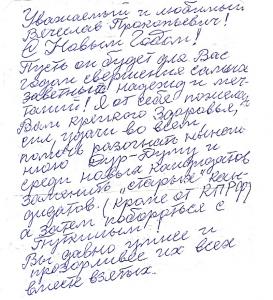 Уважаемый и любимый
Вечеслав Прокопьевич!
С Новым Годом!
Пусть он будет для Вас
годом свершения самых
заветных надежд и меч-
таний! Я от себя пожелаю
Вам крепкого здоровья,
сил, удачи во всём,
помочь разогнать нынеш-
нюю Дур-Думу и
среди новых кандидатов
заменить "старых" кан-
дидатов. (кроме от КПРФ)
а затем побороться с
Путиным!
Вы давно умнее и
прозорливее их всех
вместе взятых.